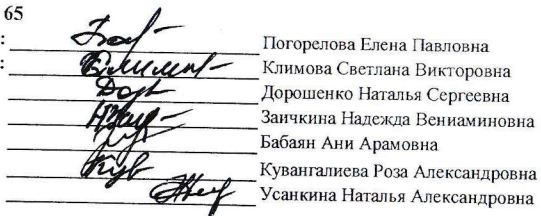 65
: Погорелова Елена Павловна
: Климова Светлана Викторовна
Дорошенко Наталья Сергеевна
Заичкина Надежда Вениаминовна
Бабаян Ани Арамовна
Кувангалиева Роза Александровна
Усанкина Наталья Александровна